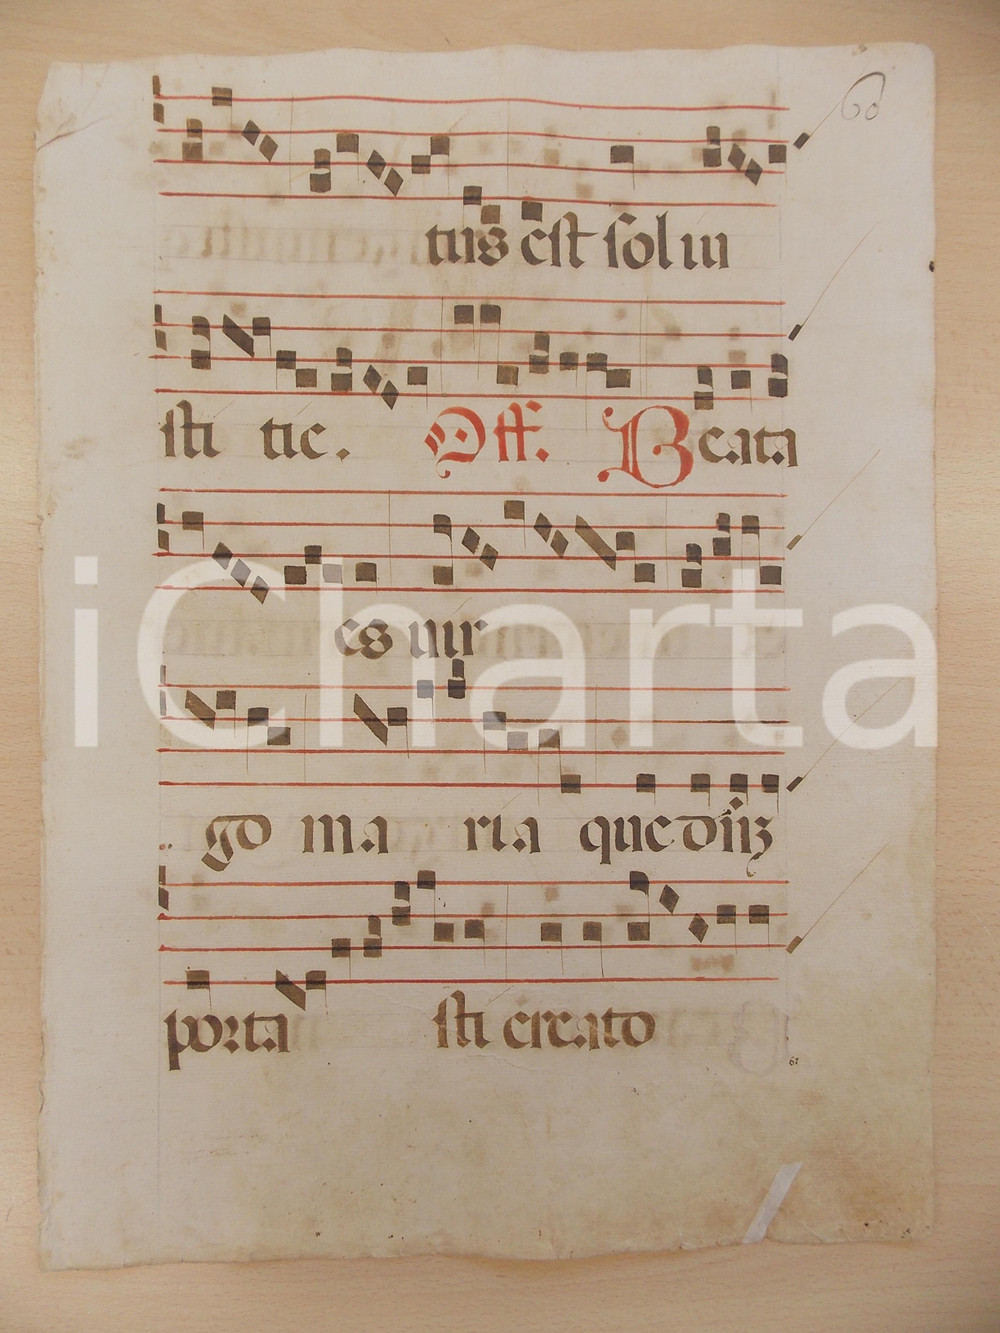 60
tus est sol iu
sti tie. Off. Beata
es uir
go ma ria que dn̄ȝ
porta sti creato
67
iCharta